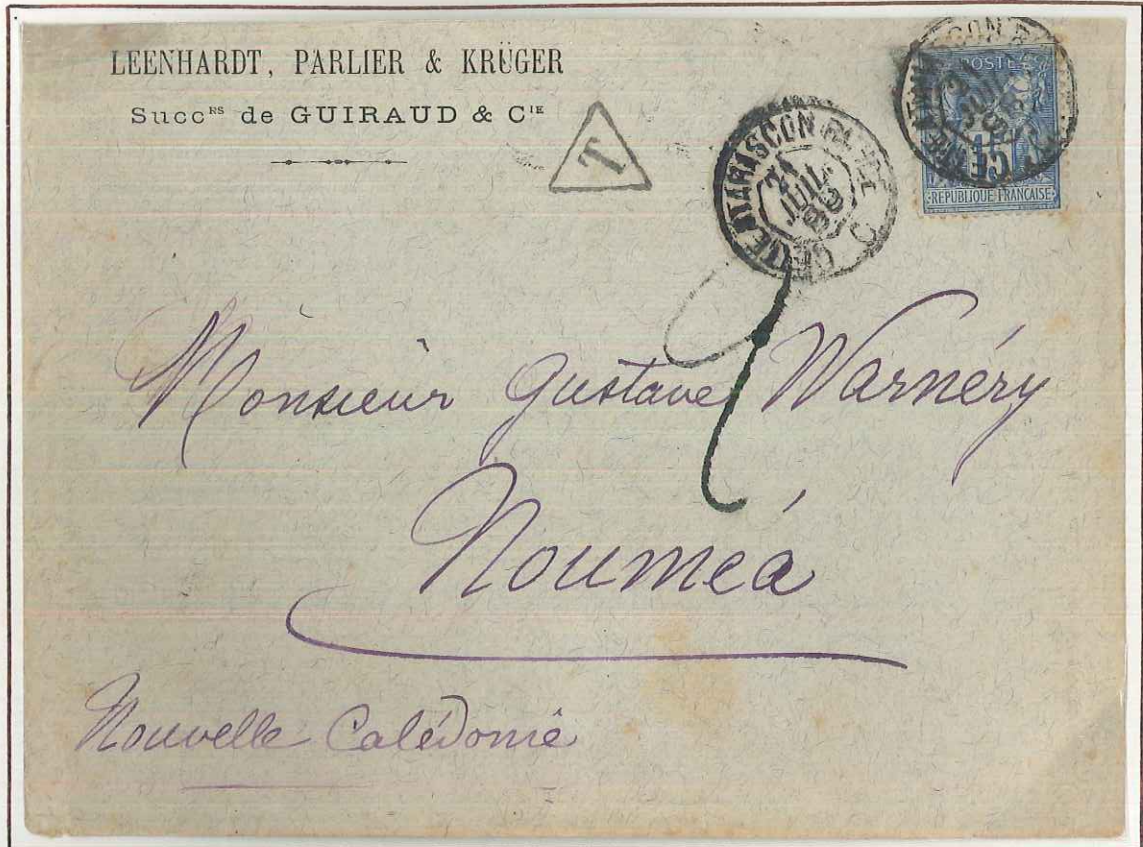 LEENHARDT, PARLIER & KRÜGER
Succᴿˢ de GUIRAUD & Cᴵᴱ
T
TARASCON
21
JUIL
C
POSTE
15
REPUBLIQUE FRANCAISE
Monsieur Gustave Warnéry
Nouméa
Nouvelle Calédonie